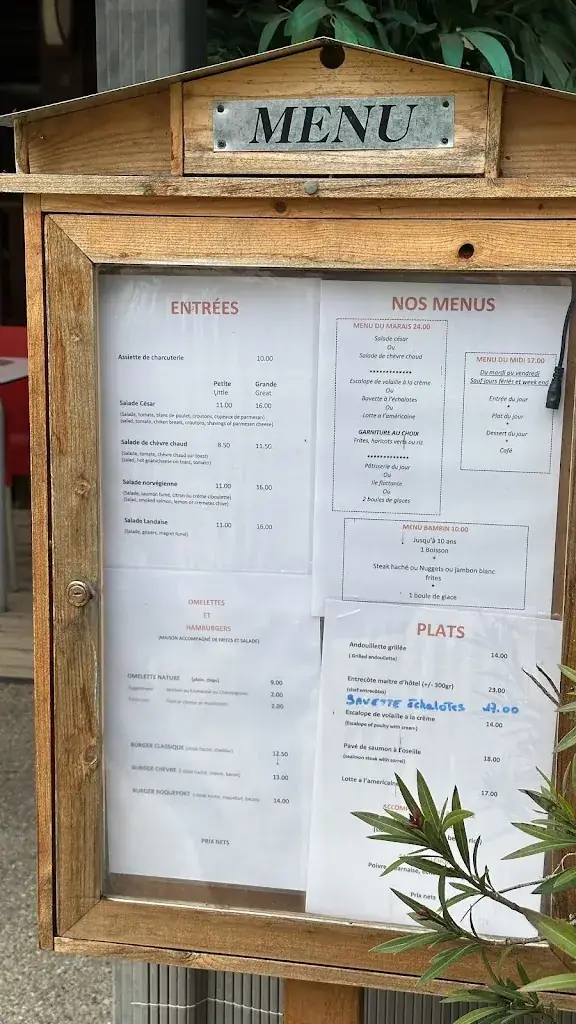 MENU
ENTRÉES
Assiette de charcuterie 10.00
Petite Grande
Little Great
Salade César 11.00 16.00
(Salade, tomate, blanc de poulet, croutons, copeaux de parmesan)
(salad, tomato, chiken breast, croutons, shavings of parmesan cheese)
Salade de chèvre chaud 8.50 11.50
(Salade, tomate, chèvre chaud sur toast)
(salad, hot goatcheese on toast, tomato)
Salade norvégienne 11.00 16.00
(Salade, saumon fumé, citron ou crème ciboulette)
(Salad, smoked salmon, lemon or cremates chive)
Salade Landaise 11.00 16.00
(Salade, gésiers, magret fumé)
OMELETTES
ET
HAMBURGERS
(MAISON ACCOMPAGNÉ DE FRITES ET SALADE)
OMELETTE NATURE (plain, chips) 9.00
2.00
2.00
BURGER CLASSIQUE 12.50
BURGER CHEVRE 13.00
BURGER ROQUEFORT 14.00
PRIX NETS
NOS MENUS
MENU DU MARAIS 24.00
Salade césar
Ou
Salade de chèvre chaud
************
Escalope de volaille à la crème
Ou
Bavette à l'échalotes
Ou
Lotte a l'américaine
GARNITURE AU CHOIX
Frites, haricots verts ou riz
************
Pâtisserie du jour
Ou
Ile flottante
Ou
2 boules de glaces
MENU DU MIDI 17.00
Du mardi au vendredi
Sauf jours fériés et week end
Entrée du jour
*
Plat du jour
*
Dessert du jour
*
Café
MENU BAMBIN 10.00
Jusqu'à 10 ans
1 Boisson
*
Steak haché ou Nuggets ou jambon blanc
frites
*
1 boule de glace
PLATS
Andouillette grillée 14.00
( Grilled andouillette)
Entrecôte maitre d'hôtel (+/- 300gr) 23.00
(chef entrecôtes)
BAVETTE échalotes 17.00
Escalope de volaille a la crème 14.00
(Escalope of poulty with cream)
Pavé de saumon à l'oseille 18.00
(salmon steak with sorrel)
Lotte a l'americaine 17.00
ACCOM
Poivre
Prix nets